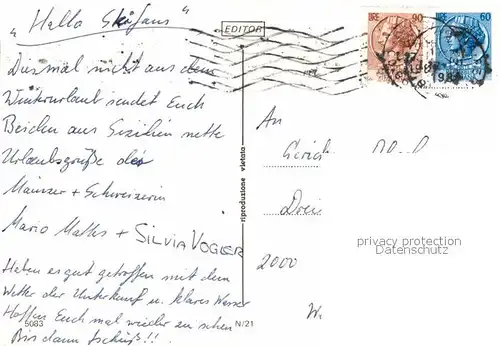 "Hallo Skifans"
EDITOR
LIRE 90
LIRE 60
Diesmal nicht aus dem
Winterurlaub sendet Euch
Beiden aus Sizilien nette
Urlaubsgrüße der
Mainzer + Schweizerin
Mario Matks + SILVIA VOGLER
Haben es gut getroffen mit dem
Wetter der Unterkunft u. klares Wasser
Hoffen Euch mal wieder zu sehen
Bis dann tschüß!!
5083
N/21
riproduzione vietata
An
Drei
2000
Wi
privacy protection
Datenschutz